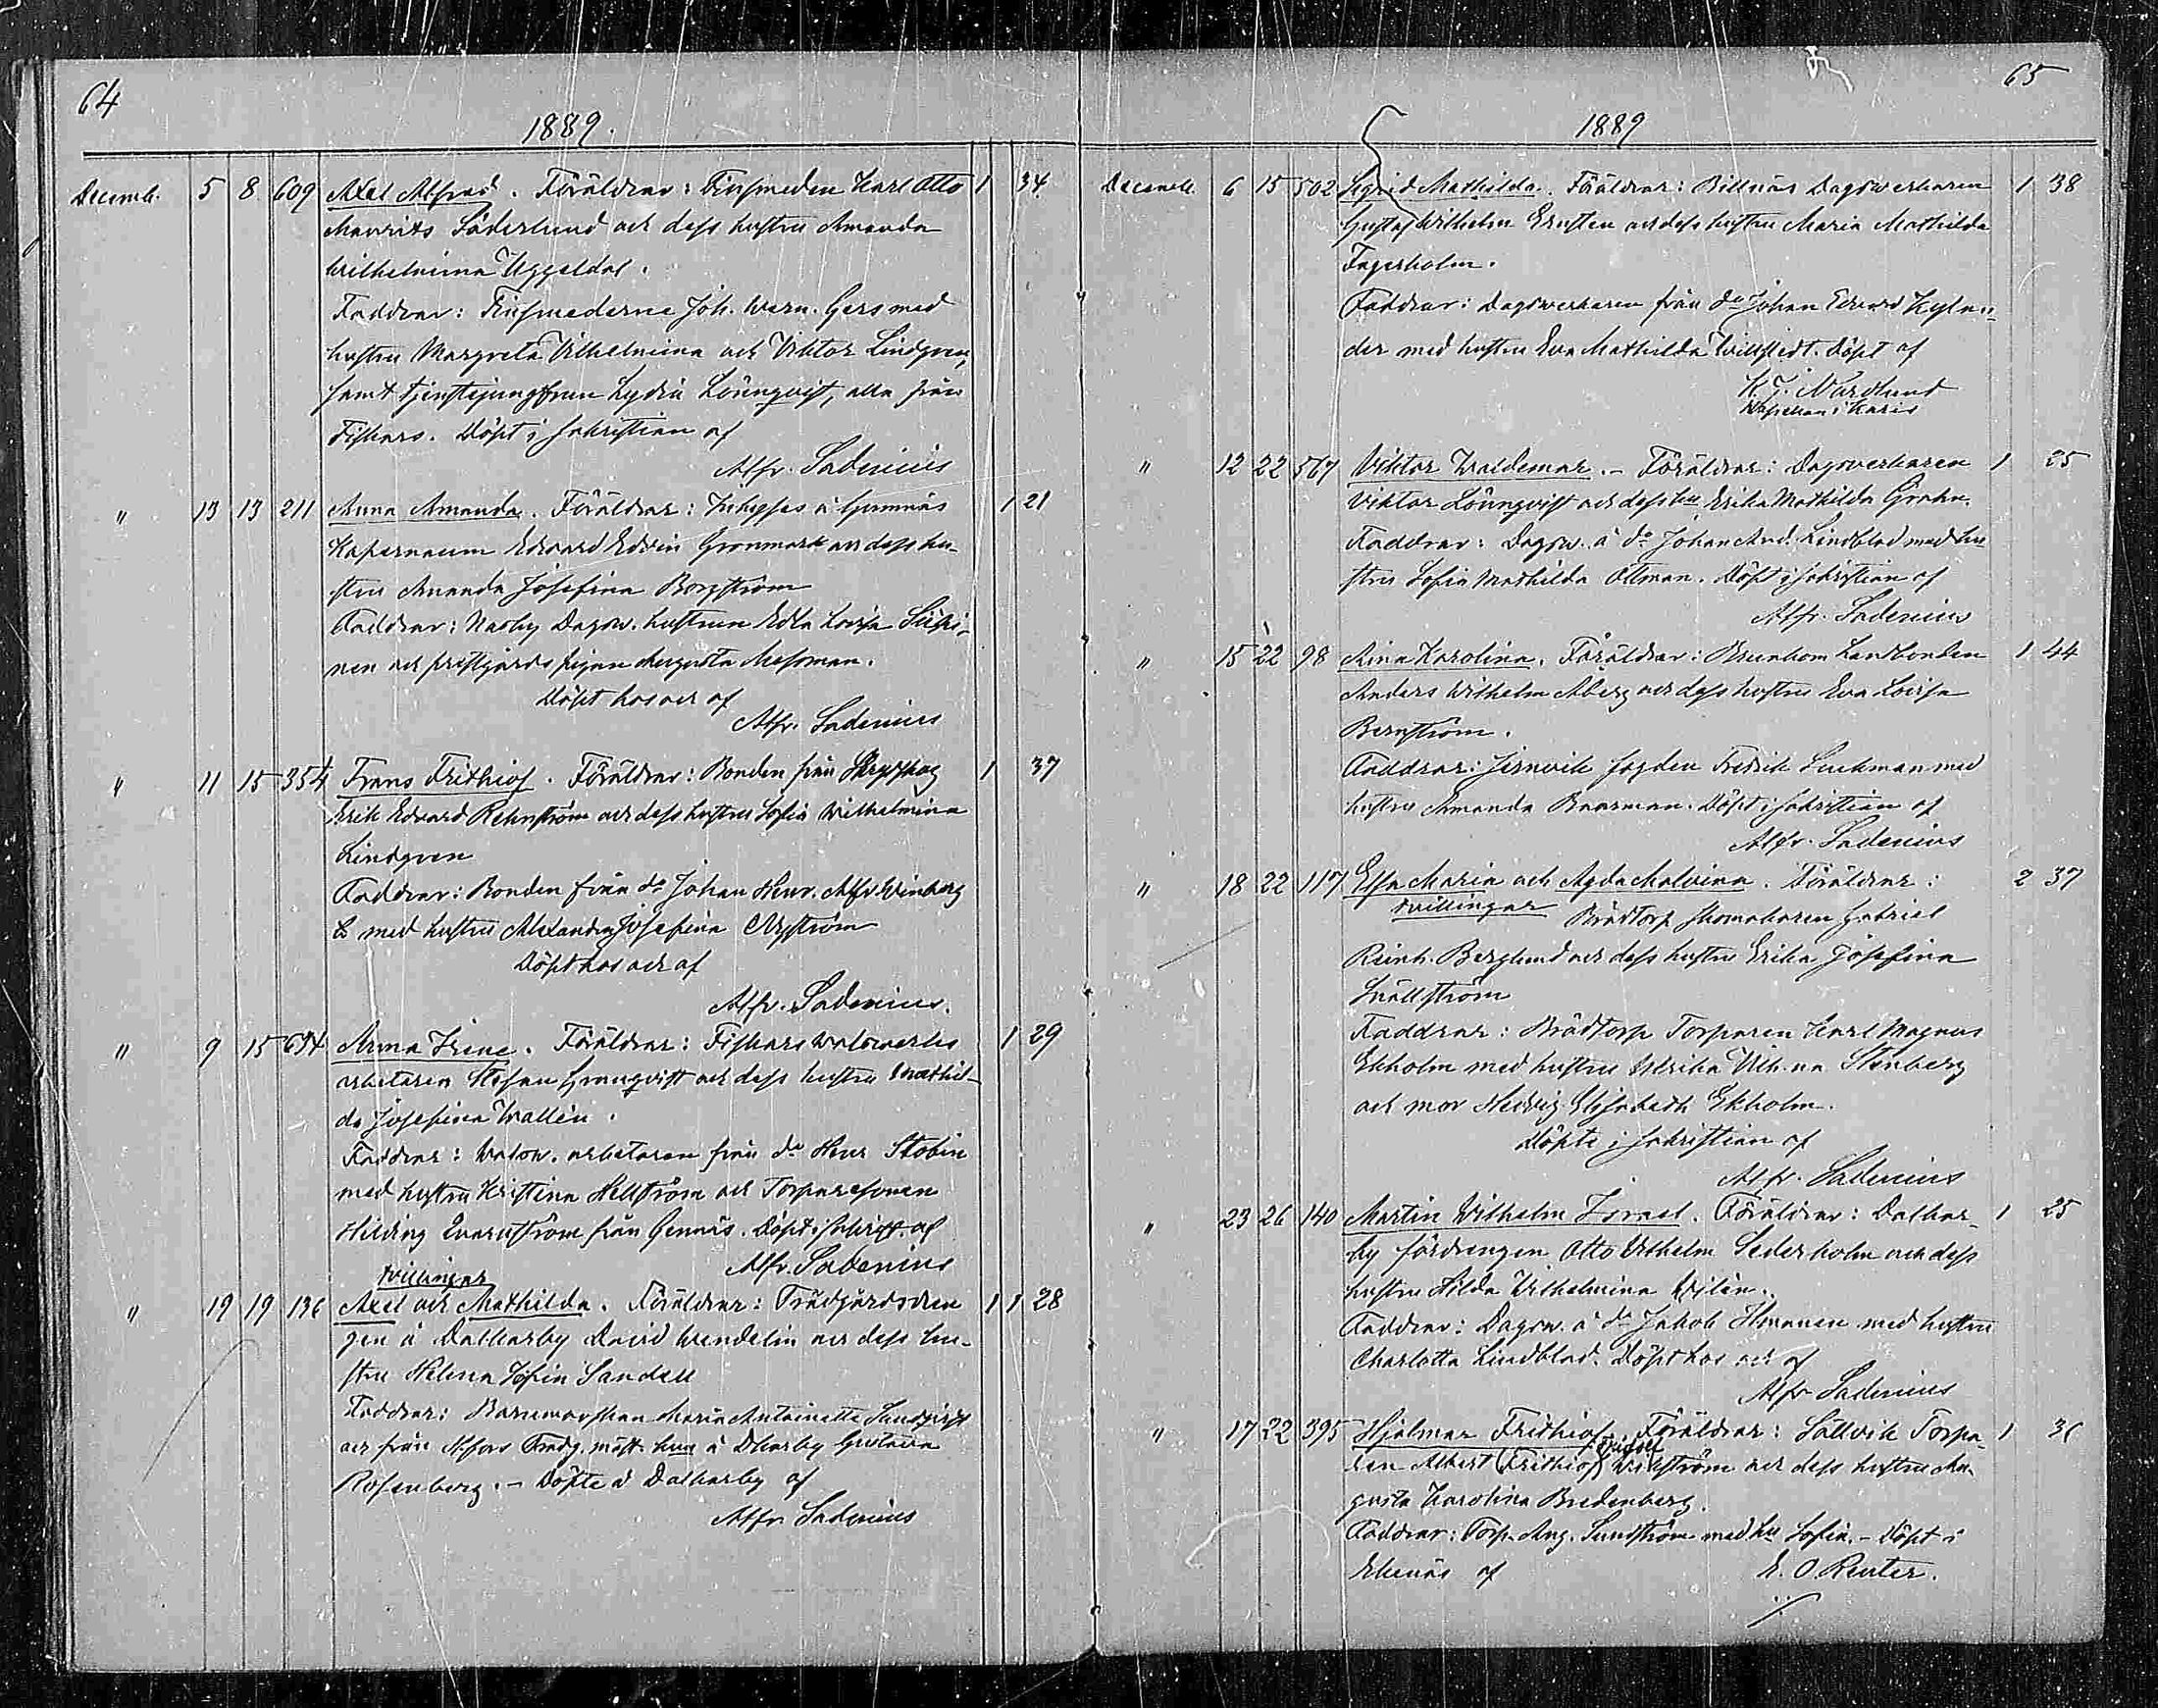 64
1889.
Decemb. 5 8 609 Axel Alfred. Föräldrar: Finsmeden Karl Otto 1 34
Maurits Söderlund och dess hustru Amanda
Wilhelmina Uggeldal.
Faddrar: Finsmederne Joh. Wern. Gers med
hustru Margreta Vilhelmina och Viktor Lindgren,
samt tjenstejungfrun Lydia Lönnqvist, alla från
Fiskars. Döpt i sakristian af
Alfr. Sadenius
" 13 13 211 Anna Amanda. Föräldrar: Inhyses å Gumnäs 1 21
Kapernaum Edvard Edvin Gronmark och dess hu-
stru Amanda Josefina Borgström
Faddrar: Nasby Dagsw. hustrun Edla Lovisa
nen och prestgårds pigan Augusta Messman.
Döpt hos och af
Alfr. Sadenius
" 11 15 354 Frans Frithiof. Föräldrar: Bonden från Skrydskog 1 37
Erik Edvard Rehnström och dess hustru Sofia Wilhelmina
Lindgren
Faddrar: Bonden från do Johan Henr. Alfr. Winberg
med hustru Alexandra Josefina
Döpt hos och af
Alfr. Sadenius.
" 9 15 694 Anna Irene. Föräldrar: Fiskars valsverks 1 29
arbetaren Stefan Granqvist och dess hustru Mathil-
da Josefina Wallén.
Faddrar: Valsw. arbetaren från do Henr Stobin
med hustru Kristina Hellström och Torparesonen
Hilding Evarström från Gennäs. Döpt i sakrist. af
Alfr. Sadenius
tvillingar
" 19 19 136 Axel och Mathilda. Föräldrar: Trädgårdsdren 1 1 28
gen å Dalkarby David Wendelin och dess hu-
stru Helena Sofia Sandell
Faddrar: Barnmorskan Maria Antoinette Sandqvist
och från Hfors Trädg. mäst. hun å Dkarby Gustava
Rosenberg. - Döpte å Dalkarby af
Alfr Sadenius
65
1889
Decemb. 6 15 502 Sigrid Mathilda. Föräldrar: Billnäs Dagsverkaren 1 38
Gustaf Wilhelm Ernsten och dess hustru Maria Mathilda
Fagerholm.
Faddrar: Dagsverkaren från do Johan Edvard Kylan-
der med hustru Eva Mathilda Willstedt. Döpt af
K. J. Nordlund
Kapellan i Karis
" 12 22 567 Viktor Waldemar. - Föräldrar: Dagsverkaren 1 25
Viktor Lönnqvist och dess hu Erika Mathilda Grahn.
Faddrar: Dagsw. å do Johan And. Lindblad med hu
stru Sofia Mathilda Ottman. Döpt i sakristian af
Alfr. Sadenius
" 15 22 98 Aina Karolina. Föräldrar: Brunkom Landbonden 1 44
Anders Wilhelm Åberg och dess hustru Eva Lovisa
Bernström.
Faddrar: Jernvik fogden Fredrik Luckman med
hustru Amanda Baarman. Döpt i sakristian af
Alfr. Sadenius
" 18 22 117 Elsa Maria och Agda Malvina. Föräldrar: 2 37
tvillingar Brödtorp skomakaren Gabriel
Reinh. Berglund och dess hustru Erika Josefina
Snällström
Faddrar: Brödtorp Torparen Karl Magnus
Ekholm med hustru Ulrika Vilh-na Stenberg
och mor Hedvig Elisabeth Ekholm.
Döpte i sakristian af
Alfr. Sadenius
" 23 26 140 Martin Vilhelm Israel. Föräldrar: Dalkar- 1 25
by fördrengen Otto Vilhelm Sederholm och dess
hustru Hilda Wilhelmina Wilén.
Faddrar: Dagsw. å do Jakob Ilmanen med hustru
Charlotta Lindblad. Döpt hos och af
Alfr Sadenius
" 17 22 395 Hjalmar Frithiof. Föräldrar: Sällvik Torpa- 1 36
Rudolf
ren Albert (Frithiof) Wikström och dess hustru Au-
gusta Karolina Bredenberg.
Faddrar: Torp. Aug. Sundström med hu Sofia. - Döpt i
Ekenäs af E. O. Reuter.